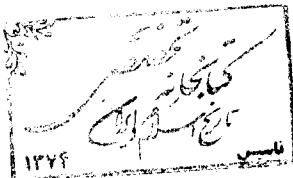 کتابخانه تخصصی
تاریخ اسلام و ایران
تاسیس ۱۳۷۶